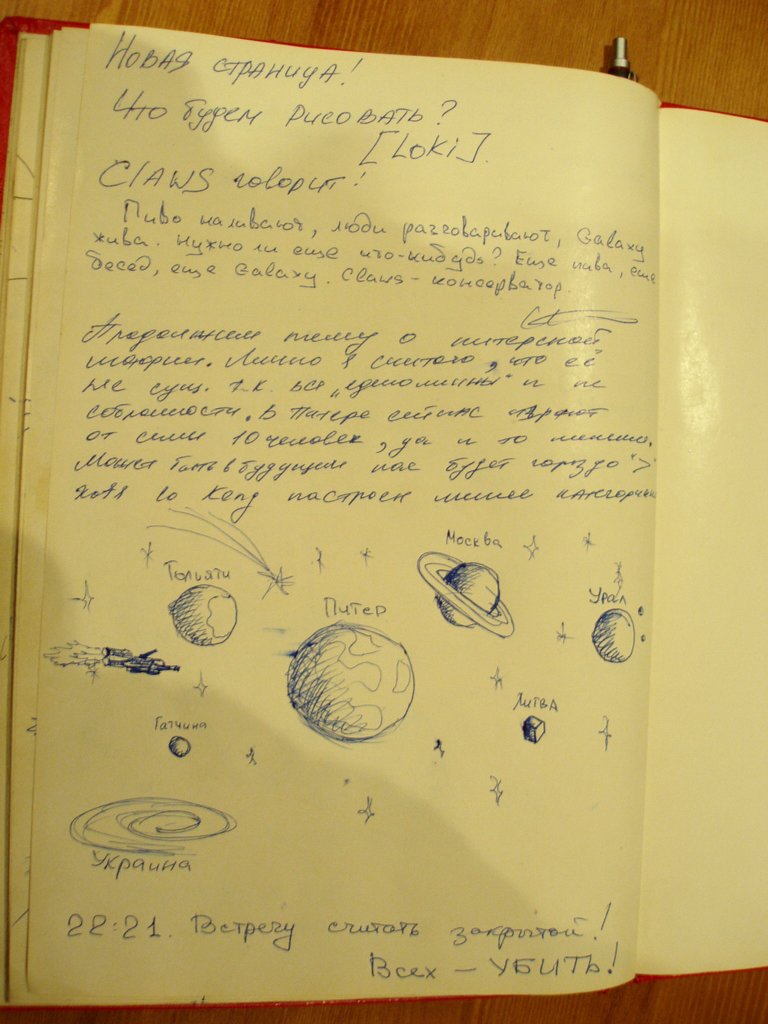 Новая страница!
Что будем рисовать?
[Loki].
Claws говорит!
Пиво наливают, люди разговаривают, Galaxy
жива. Нужно ли еще что-нибудь? Еще пива, еще
бесед, еще Galaxy. Claws - консерватор.
Продолжаем тему о питерской
мафии. Лично я считаю, что её
не сущ. т.к. все
В Питере сейчас играют
от силы 10 человек, да и то меньше.
Может быть в будущем нас будет гораздо ">"
хотя Lo Keng настроен менее категорично
Москва
Тольяти
Питер
Урал
Литва
Гатчина
Украина
22:21. Встречу считать закрытой!
Всех - УБИТЬ!